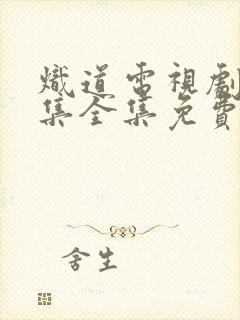 熾道電視劇
集全集免費
舍生